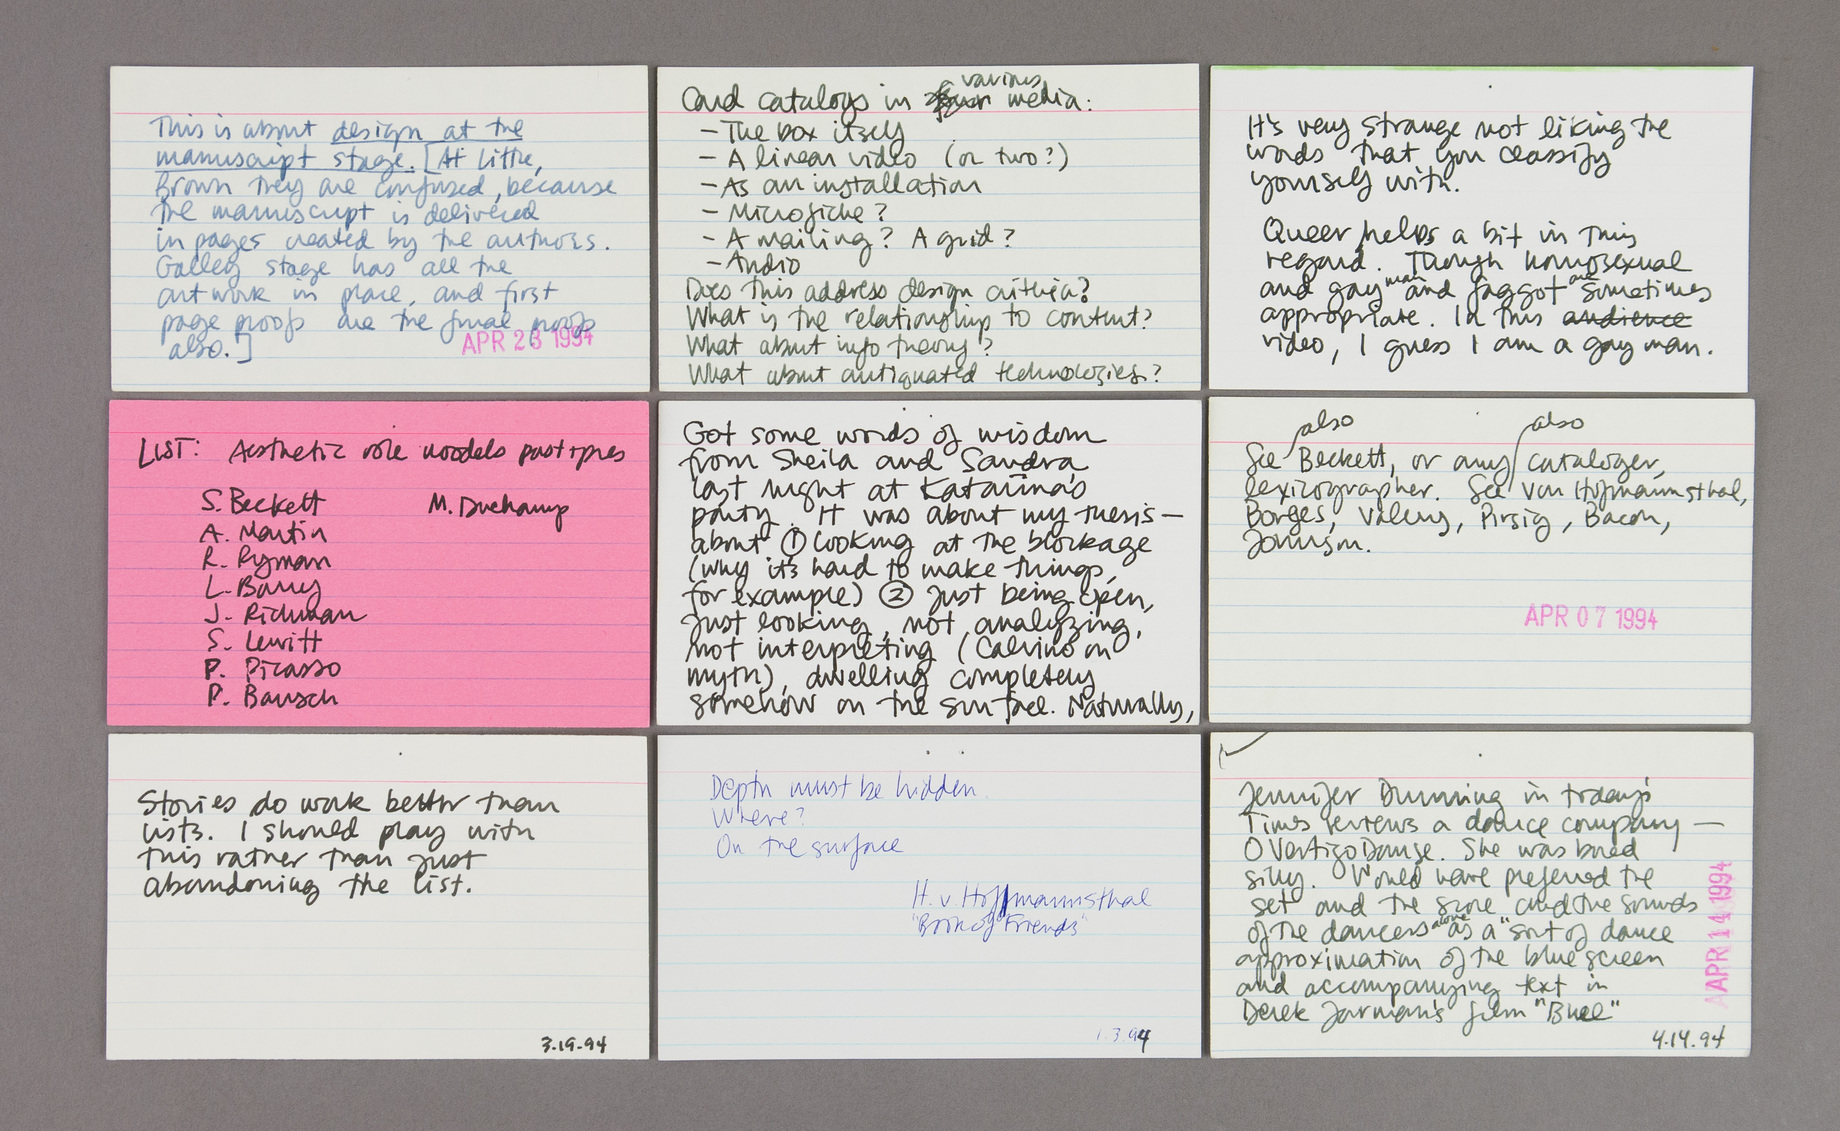 This is about design at the
manuscript stage. [At Little,
Brown they are confused, because
the manuscript is delivered
in pages created by the authors.
Galley stage has all the
artwork in place, and first
page proofs are the final proofs
also.]
APR 26 1994
Card catalogs in various media:
- The box itself
- A linear video (or two?)
- As an installation
- Microfiche?
- A mailing? A grid?
- Audio
Does this address design criteria?
What is the relationship to content?
What about info theory?
What about antiquated technologies?
It's very strange not liking the
words that you classify
yourself with.
Queer helps a bit in this
regard. Though homosexual
and gay man and faggot are sometimes
appropriate. In this audience
video, I guess I am a gay man.
LIST: Aesthetic role models past + pres
S. Beckett M. Duchamp
A. Martin
R. Ryman
L. Barry
J. Richman
S. Lewitt
P. Picasso
P. Bausch
Got some words of wisdom
from Sheila and Sandra
last night at Katarina's
party. It was about my thesis—
about ① looking at the blockage
(why it's hard to make things,
for example) ② Just being open,
just looking, not analyzing,
not interpreting (Calvino on
myth), dwelling completely
somehow on the surface. Naturally,
also also
See Beckett, or any cataloger,
lexicographer. See von Hofmannsthal,
Borges, Valery, Pirsig, Bacon,
Johnson.
APR 07 1994
Stories do work better than
lists. I should play with
this rather than just
abandoning the list.
3.19.94
Depth must be hidden.
Where?
On the surface
H. v. Hoffmannsthal
"Book of Friends"
1.3.94
Jennifer Dunning in today's
Times reviews a dance company —
O Vertigo Danse. She was bored
silly. Would have preferred the
set and the score and the sounds
of the dancers alone as a "sort of dance
approximation of the blue screen
and accompanying text in
Derek Jarman's film "Blue"
APR 14 1994
4.14.94